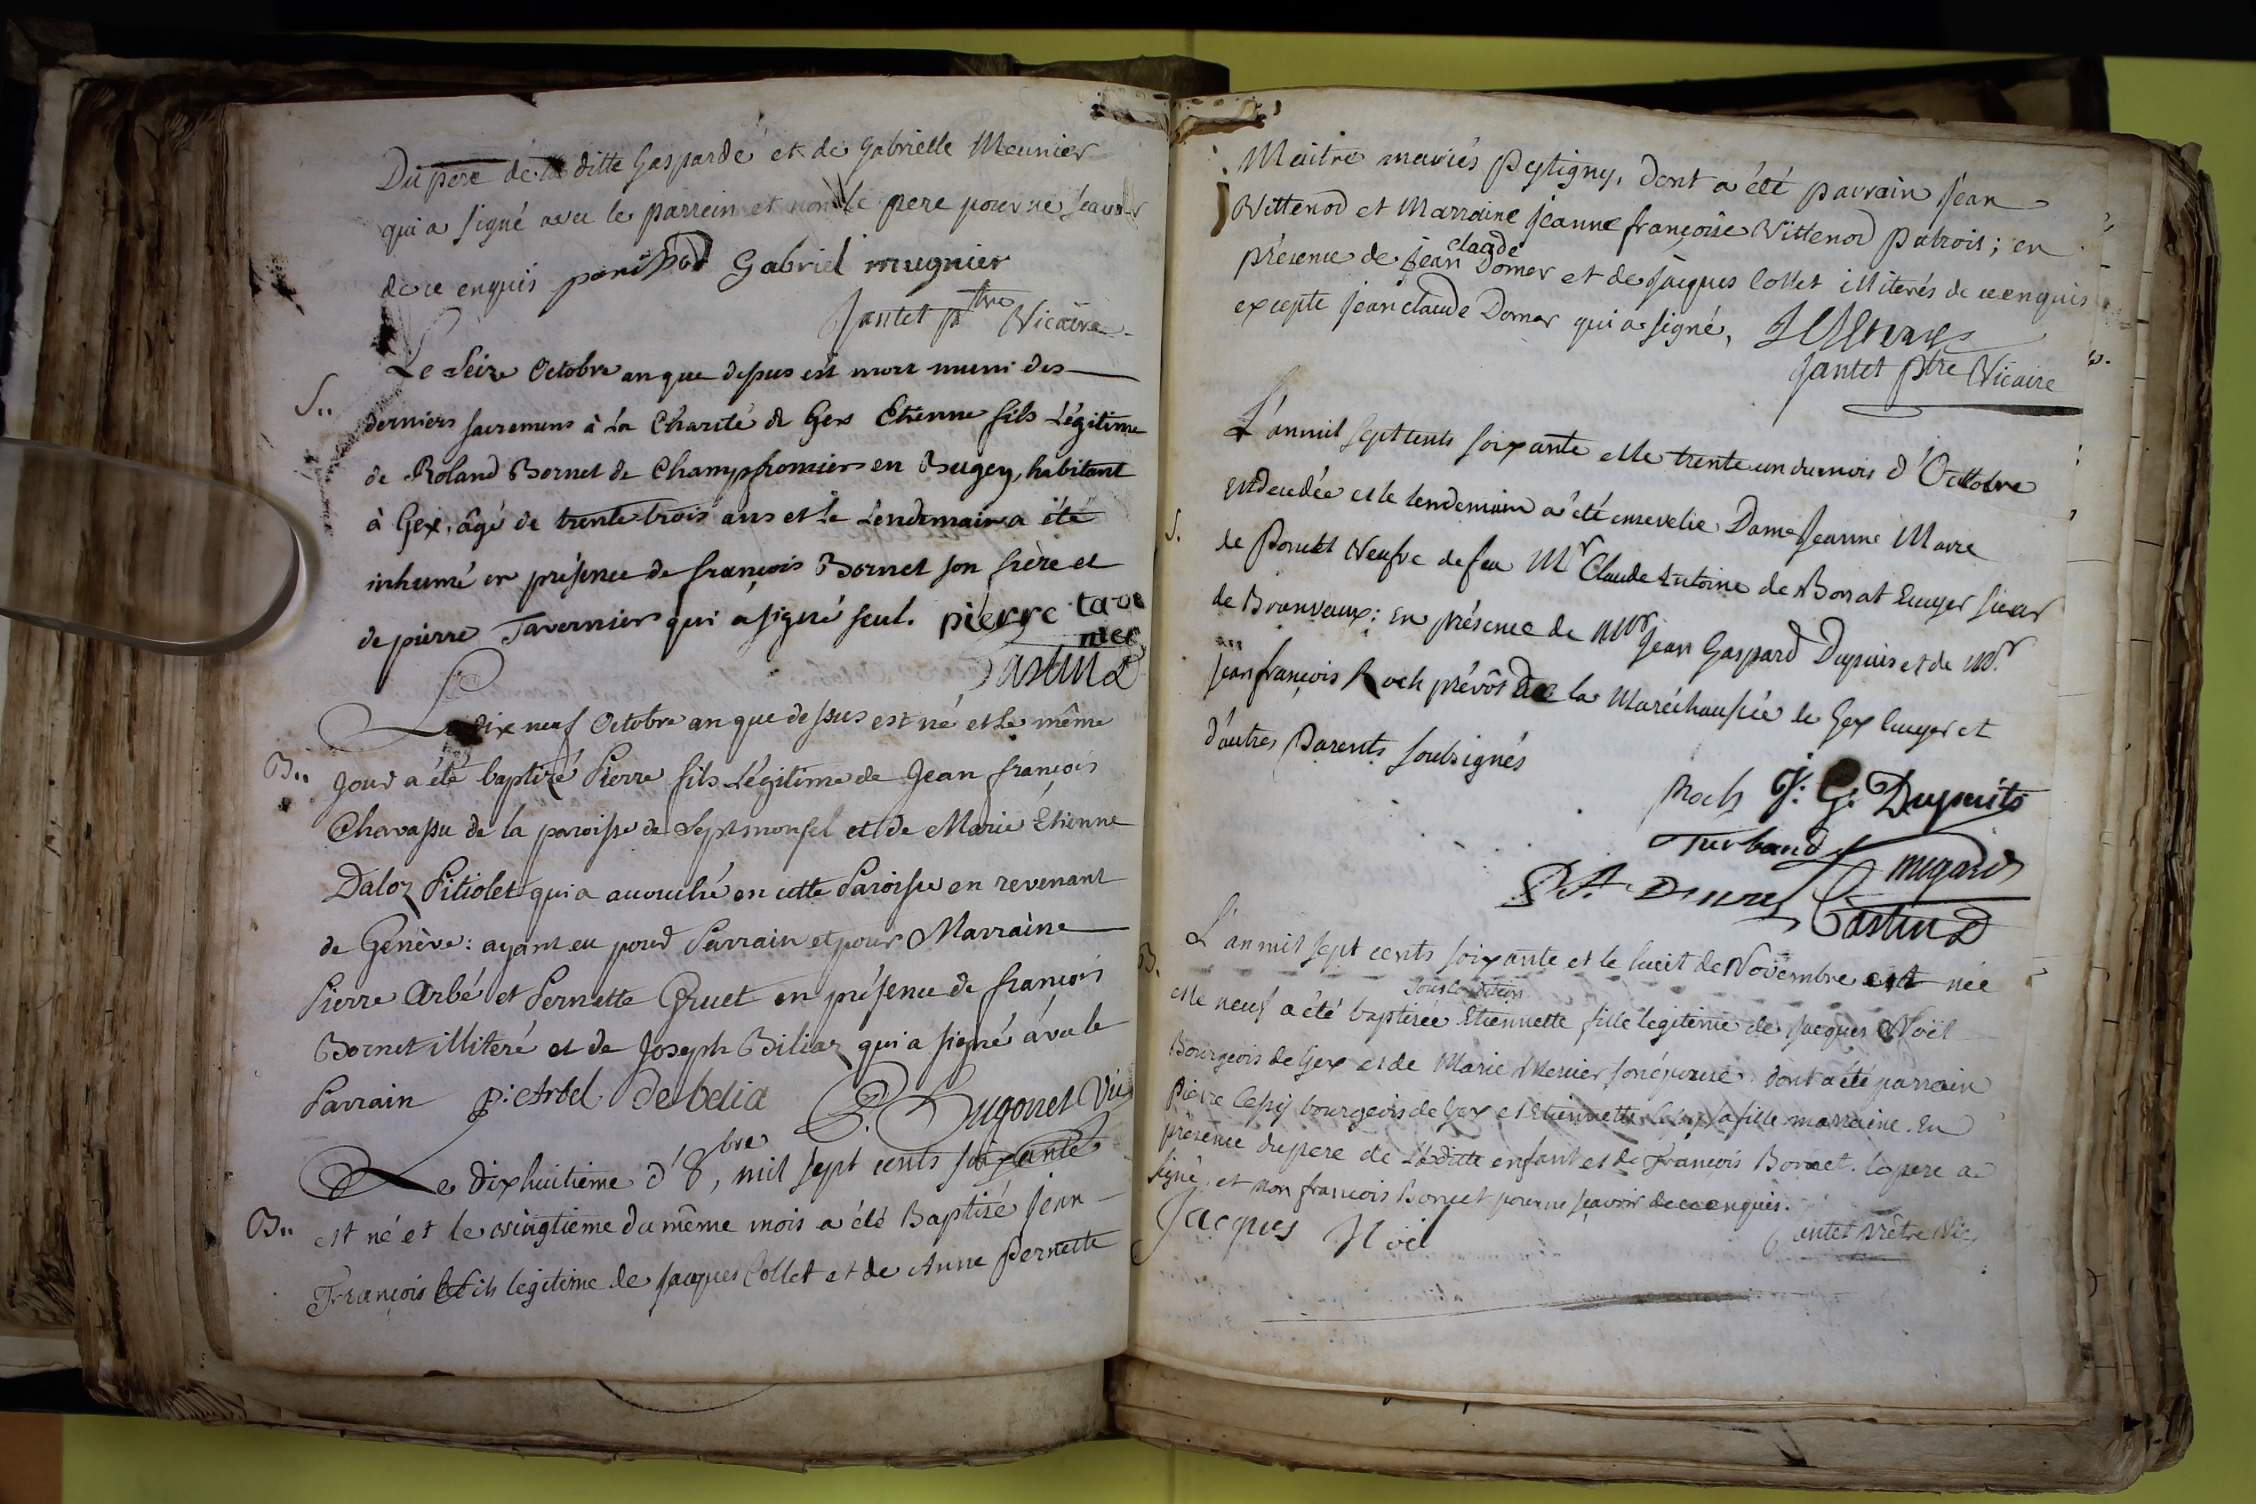 Du pere de la ditte Gasparde et de Gabrielle Meunier
qui a signé avec le parrein et non le pere pour ne sçavoir
de ce enquis Gabriel mugnier
Jantet ptre Vicaire
S..
Le Seize Octobre an que dessus est mort muni des
derniers sacremens à la Charité de Gex Etienne fils Légitime
de Roland Bornet de Champfromier en Bugey, habitant
à Gex, âgé de trente trois ans et le Lendemain a été
inhumé en présence de françois Bornet son frère et
de pierre Tavernier qui a signé seul. pierre tave
nier
Castin D
Le dix neuf Octobre an que dessus est né et le même
B..
Jour a été baptizé Pierre fils Légitime de Jean françois
Chavassu de la paroisse de Septmonsel et de Marie Etienne
Daloz Pitiolet qui a accouché en cette Paroisse en revenant
de Genève: ayant eu pour Parrain et pour Marraine
Pierre Arbé et Pernette Gruet en présence de françois
Bornet illiteré et de Joseph Biliaz qui a signé avec le
Parrain p: Arbel de belia P. Hugonet Vic
Le dixhuitieme d'8bre, mil sept cents soixante
B..
est né et le vingtieme du même mois a été Baptizé Jean
François fils legitime de Jacques Collet et de Anne Pernette
Maitre mariés Pegtigny, dont a été parrain Jean
Vittenod et Marraine Jeanne françoise Vittenod Patrois; en
claude
présence de Jean Domer et de Jacques Collet illiterés de ce enquis
excepte Jean claude Domer qui a signé,
Jantet Ptre Vicaire
L'an mil sept cents soixante et le trente un du mois d'Octobre
S.
est decedée et le lendemain a été ensevelie Dame Jeanne Marie
de Ponct Veufve de feu Mr Claude Antoine de Borsat Ecuyer sieur
de Branvaux: en présence de Mr Jean Gaspard Dupuis et de Mr
Jean françois Roch prévôt de la Maréchaussée de Gex Ecuyer et
d'autres Parents soubsignés
Roch J. G. Dupuits
Turband migard
Castin D
L'an mil sept cents soixante et le huit de Novembre est née
B.
sous condition
et le neuf a été baptisée Etiennette fille legitime de Jacques Noël
Bourgeois de Gex et de Marie Mernier son épouse. dont a été parrain
Pierre Cepy bourgeois de Gex et Etiennette Cepy sa fille marraine. En
présence du pere de laditte enfant et de François Bornet. le pere a
signé, et non francois Bornet pour ne sçavoir de ce enquis.
Jacques Noël
Jantet Prêtre Vic